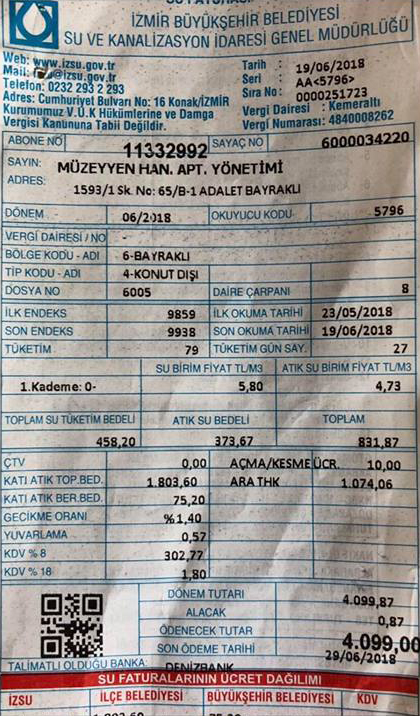 SU FATURASI
İZMİR BÜYÜKŞEHİR BELEDİYESİ
SU VE KANALİZASYON İDARESİ GENEL MÜDÜRLÜĞÜ
Web: www.izsu.gov.tr
Mail: @izsu.gov.tr
Telefon: 0232 293 2 293
Adres: Cumhuriyet Bulvarı No: 16 Konak/İZMİR
Kurumumuz V.U.K Hükümlerine ve Damga
Vergisi Kanununa Tabii Değildir.
Tarih : 19/06/2018
Seri : AA<5796>
Sıra No : 0000251723
Vergi Dairesi : Kemeraltı
Vergi Numarası: 4840008262
ABONE NO 11332992 SAYAÇ NO 6000034220
SAYIN: MÜZEYYEN HAN. APT. YÖNETİMİ
ADRES: 1593/1 Sk. No: 65/B-1 ADALET BAYRAKLI
DÖNEM 06/2018 OKUYUCU KODU 5796
VERGİ DAİRESİ / NO -
BÖLGE KODU - ADI 6-BAYRAKLI
TİP KODU - ADI 4-KONUT DIŞI
DOSYA NO 6005 DAİRE ÇARPANI 8
İLK ENDEKS 9859 İLK OKUMA TARİHİ 23/05/2018
SON ENDEKS 9938 SON OKUMA TARİHİ 19/06/2018
TÜKETİM 79 TÜKETİM GÜN SAY. 27
SU BİRİM FİYAT TL/M3 ATIK SU BİRİM FİYAT TL/M3
1.Kademe: 0- 5,80 4,73
TOPLAM SU TÜKETİM BEDELİ ATIK SU BEDELİ TOPLAM
458,20 373,67 831,87
ÇTV 0,00 AÇMA/KESME ÜCR. 10,00
KATI ATIK TOP.BED. 1.803,60 ARA THK 1.074,06
KATI ATIK BER.BED. 75,20
GECİKME ORANI %1,40
YUVARLAMA 0,57
KDV % 8 302,77
KDV % 18 1,80
DÖNEM TUTARI 4.099,87
ALACAK 0,87
ÖDENECEK TUTAR 4.099,00
SON ÖDEME TARİHİ 29/06/2018
TALİMATLI OLDUĞU BANKA: DENİZBANK
SU FATURALARININ ÜCRET DAĞILIMI
İZSU İLÇE BELEDİYESİ BÜYÜKŞEHİR BELEDİYESİ KDV